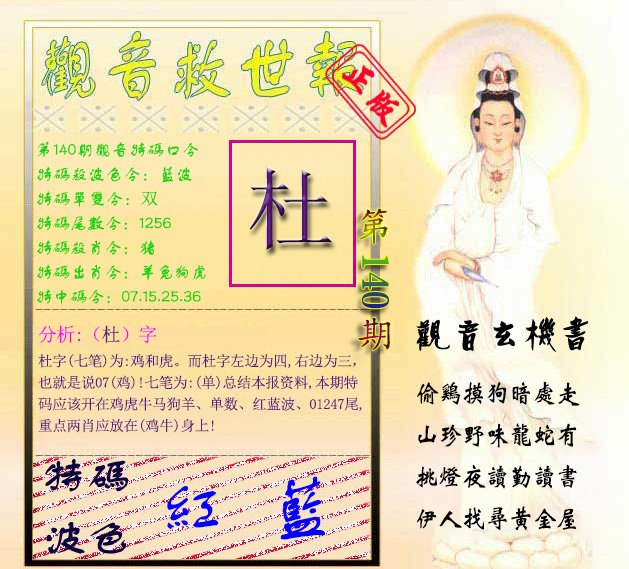 觀音救世報
正版
第140期觀音特碼口令
特碼殺波色令：藍波
特碼單雙令：双
特碼尾數令：1256
特碼殺肖令：豬
特碼出肖令：羊兔狗虎
特中碼令：07.15.25.36
杜
第140期
分析:（杜）字
杜字(七笔)为:鸡和虎。而杜字左边为四,右边为三,
也就是说07(鸡)!七笔为:(单)总结本报资料,本期特
码应该开在鸡虎牛马狗羊、单数、红蓝波、01247尾,
重点两肖应放在(鸡牛)身上!
特碼
波色
紅 藍
觀音玄機書
偷鷄摸狗暗處走
山珍野味龍蛇有
挑燈夜讀勤讀書
伊人找尋黃金屋